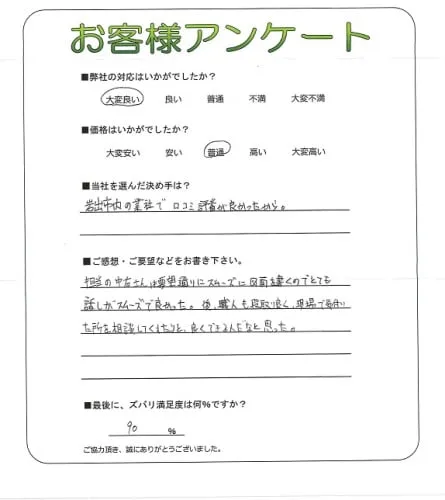 お客様アンケート
■弊社の対応はいかがでしたか？
大変良い 良い 普通 不満 大変不満
■価格はいかがでしたか？
大変安い 安い 普通 高い 大変高い
■当社を選んだ決め手は？
岩出市内の業社で 口コミ評価が良かったから。
■ご感想・ご要望などをお書き下さい。
担当の中古さんは要望通りにスムーズに図面書くのでとても
話しがスムーズで良かった。後、職人も段取り良く、現場で
た所を相談してくれたりと、良くできるんだなと思った。
■最後に、ズバリ満足度は何％ですか？
90 ％
ご協力頂き、誠にありがとうございました。